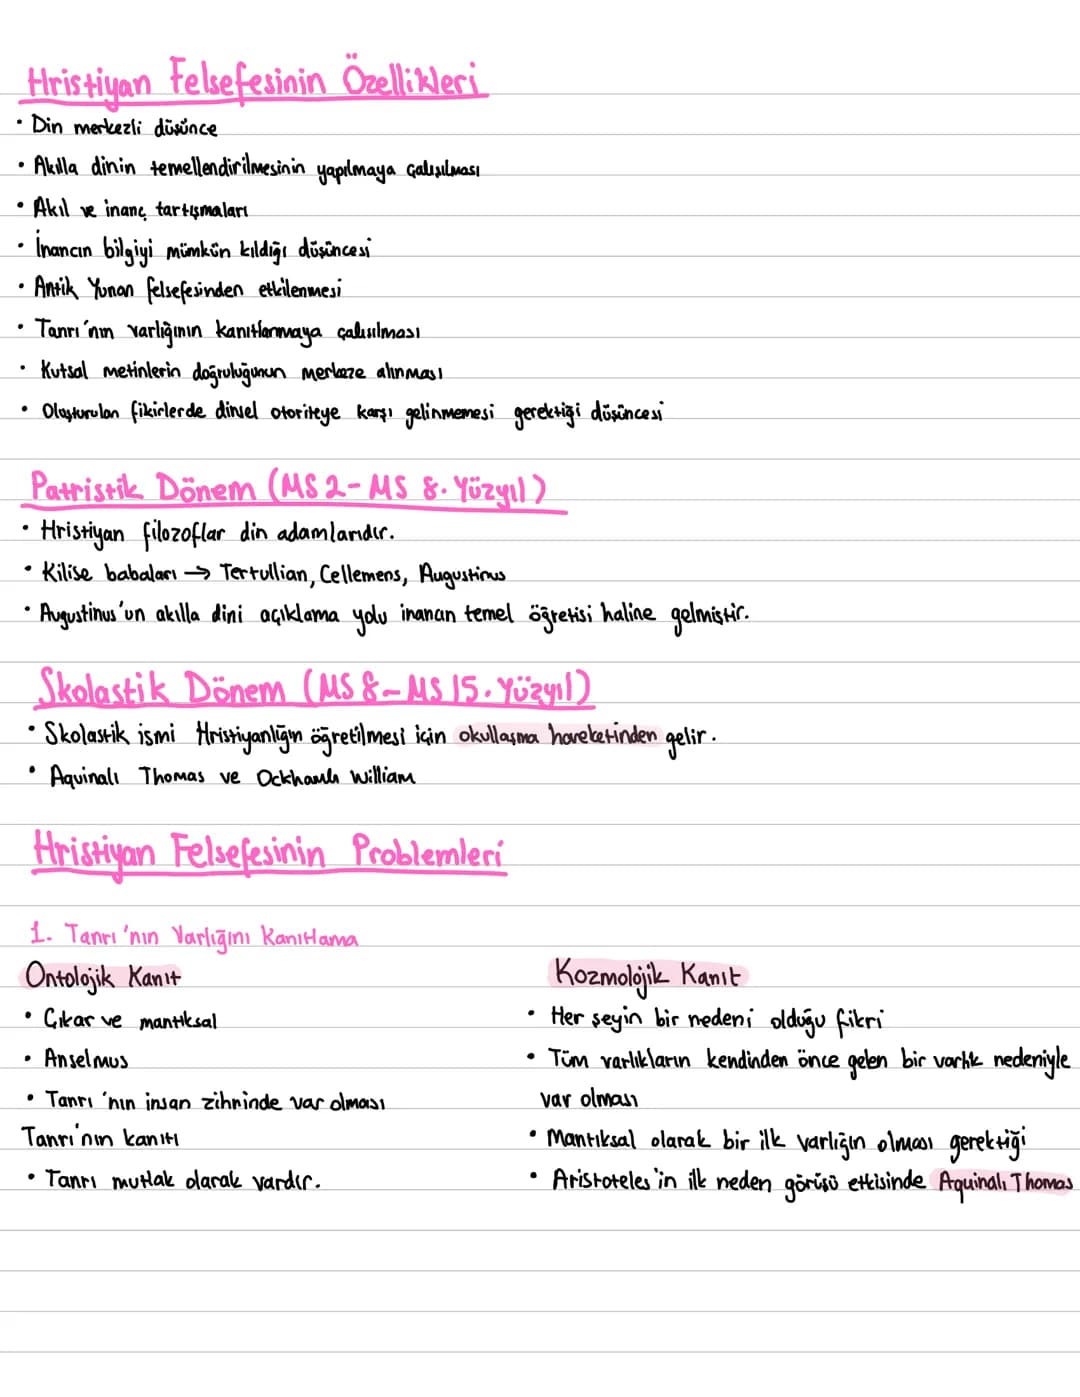 Hristiyan Felsefesinin Özellikleri
• Din merkezli düşünce
• Akılla dinin temellendirilmesinin yapılmaya çalışılması
• Akıl ve inanç tartışmaları
• İnancın bilgiyi mümkün kıldığı düşüncesi
• Antik Yunan felsefesinden etkilenmesi
• Tanrı'nın varlığının kanıtlanmaya çalışılması
• Kutsal metinlerin doğruluğunun merkeze alınması
• Oluşturulan fikirlerde dinsel otoriteye karşı gelinmemesi gerektiği düşüncesi
Patristik Dönem (MS 2-MS 8. Yüzyıl)
• Hristiyan filozoflar din adamlarıdır.
• Kilise babaları → Tertullian, Cellemens, Augustinus
• Augustinus'un akılla dini açıklama yolu inancın temel öğretisi haline gelmiştir.
Skolastik Dönem (MS 8-MS 15. Yüzyıl)
• Skolastik ismi Hristiyanlığın öğretilmesi için okullaşma hareketinden gelir.
• Aquinalı Thomas ve Ockhamlı William
Hristiyan Felsefesinin Problemleri
1. Tanrı'nın Varlığını Kanıtlama
Ontolojik Kanıt
• Çıkar ve mantıksal
• Anselmus
• Tanrı'nın insan zihninde var olması
Tanrı'nın kanıtı
• Tanrı mutlak olarak vardır.
Kozmolojik Kanıt
• Her şeyin bir nedeni olduğu fikri
• Tüm varlıkların kendinden önce gelen bir varlık nedeniyle
var olması
• Mantıksal olarak bir ilk varlığın olması gerektiği
• Aristoteles'in ilk neden görüşü etkisinde Aquinalı Thomas